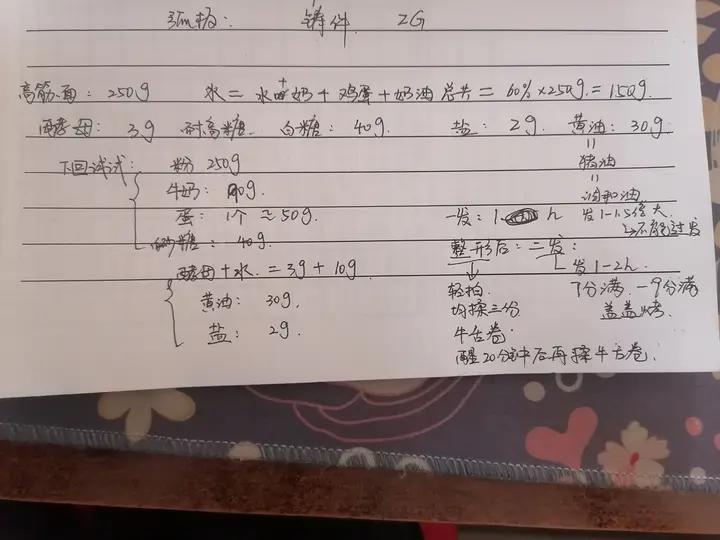 板: 铸件 ZG
高筋面: 250g 水 = 水+奶+鸡蛋+奶油 总共 = 60%×250g = 150g.
酵母: 3g 耐高糖 白糖: 40g. 盐: 2g. 黄油: 30g.
=
猪油
=
调和油
下回试试: 粉 250g
牛奶: 90g.
蛋: 1个 ≈ 50g.
糖: 40g.
酵母+水 = 3g + 10g
黄油: 30g.
盐: 2g.
一发: 1. h 发1-1.5倍大.
→不能过发
整形后: 二发:
发1-2h.
轻拍.
均揉三份
牛舌卷.
醒20分钟中后再揉牛舌卷.
7分满 - 9分满
盖盖烤.